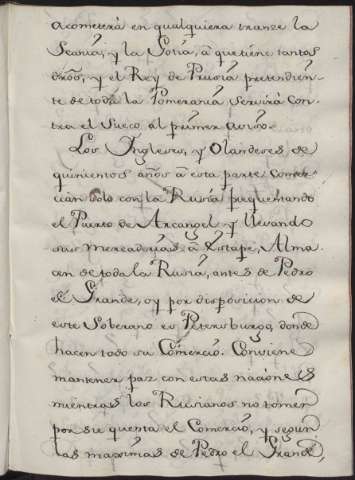 acometerá en qualquiera tranze la
Scania, y la Gotia, a que tiene tantos
dros, y el Rey de Prusia pretendien-
te de toda la Pomerania servirá con-
tra el Sueco al primer aviso.
Los Ingleses, y Olandeses de
quinientos años a esta parte comer-
cian solo con la Rusia frequentando
el Puerto de Arcangel y llevando
sus mercadurias à Estape, Alma-
cen de toda la Rusia, antes de Pedro
el Grande, oy por disposicion de
este Soberano es Petersburgo, donde
hacen todo su Comercio. Conviene
mantener paz con estas naciones
mientras los Rusianos no tomen
por su quenta el Comercio, y segun
las maximas de Pedro el Grande,